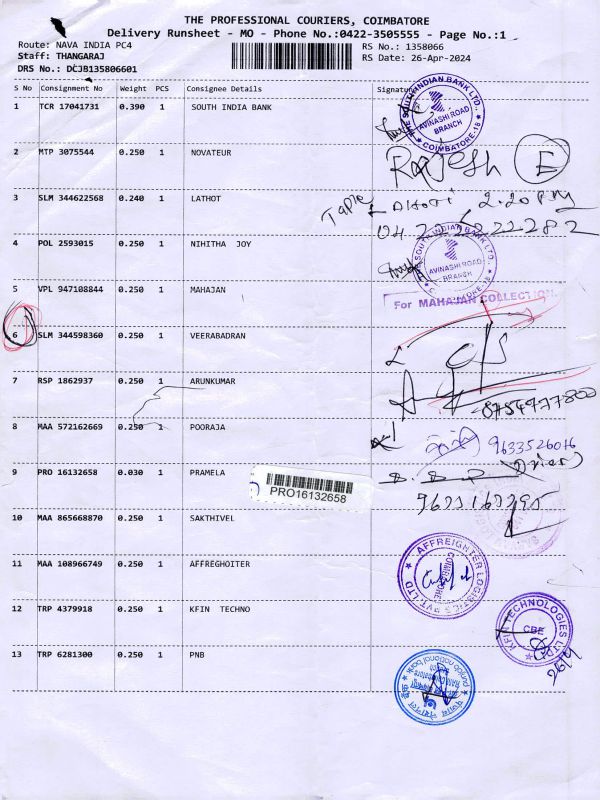 THE PROFESSIONAL COURIERS, COIMBATORE
Delivery Runsheet - MO - Phone No.:0422-3505555 - Page No.:1
Route: NAVA INDIA PC4
RS No.: 1358066
Staff: THANGARAJ
RS Date: 26-Apr-2024
DRS No.: DCJB135806601
S No Consignment No Weight PCS Consignee Details Signature
1 TCR 17041731 0.390 1 SOUTH INDIA BANK
THE SOUTH INDIAN BANK LTD.
AVINASHI ROAD
BRANCH
COIMBATORE-18
2 MTP 3075544 0.250 1 NOVATEUR Rajesh E
3 SLM 344622568 0.240 1 LATHOT
2.20 PM
4 POL 2593015 0.250 1 NIHITHA JOY
THE SOUTH INDIAN BANK LTD.
AVINASHI ROAD
BRANCH
COIMBATORE-18
5 VPL 947108844 0.250 1 MAHAJAN
For MAHAJAN COLLECTION.
6 SLM 344598360 0.250 1 VEERABADRAN
7 RSP 1862937 0.250 1 ARUNKUMAR
8754977800
8 MAA 572162669 0.250 1 POORAJA
9633526076
9 PRO 16132658 0.030 1 PRAMELA
PRO16132658
10 MAA 865668870 0.250 1 SAKTHIVEL
11 MAA 108966749 0.250 1 AFFREGHOITER
AFFREIGHTER LOGISTICS PVT. LTD
COIMBATORE
12 TRP 4379918 0.250 1 KFIN TECHNO
KFIN TECHNOLOGIES LTD
CBE
26/4
13 TRP 6281300 0.250 1 PNB
punjab national bank